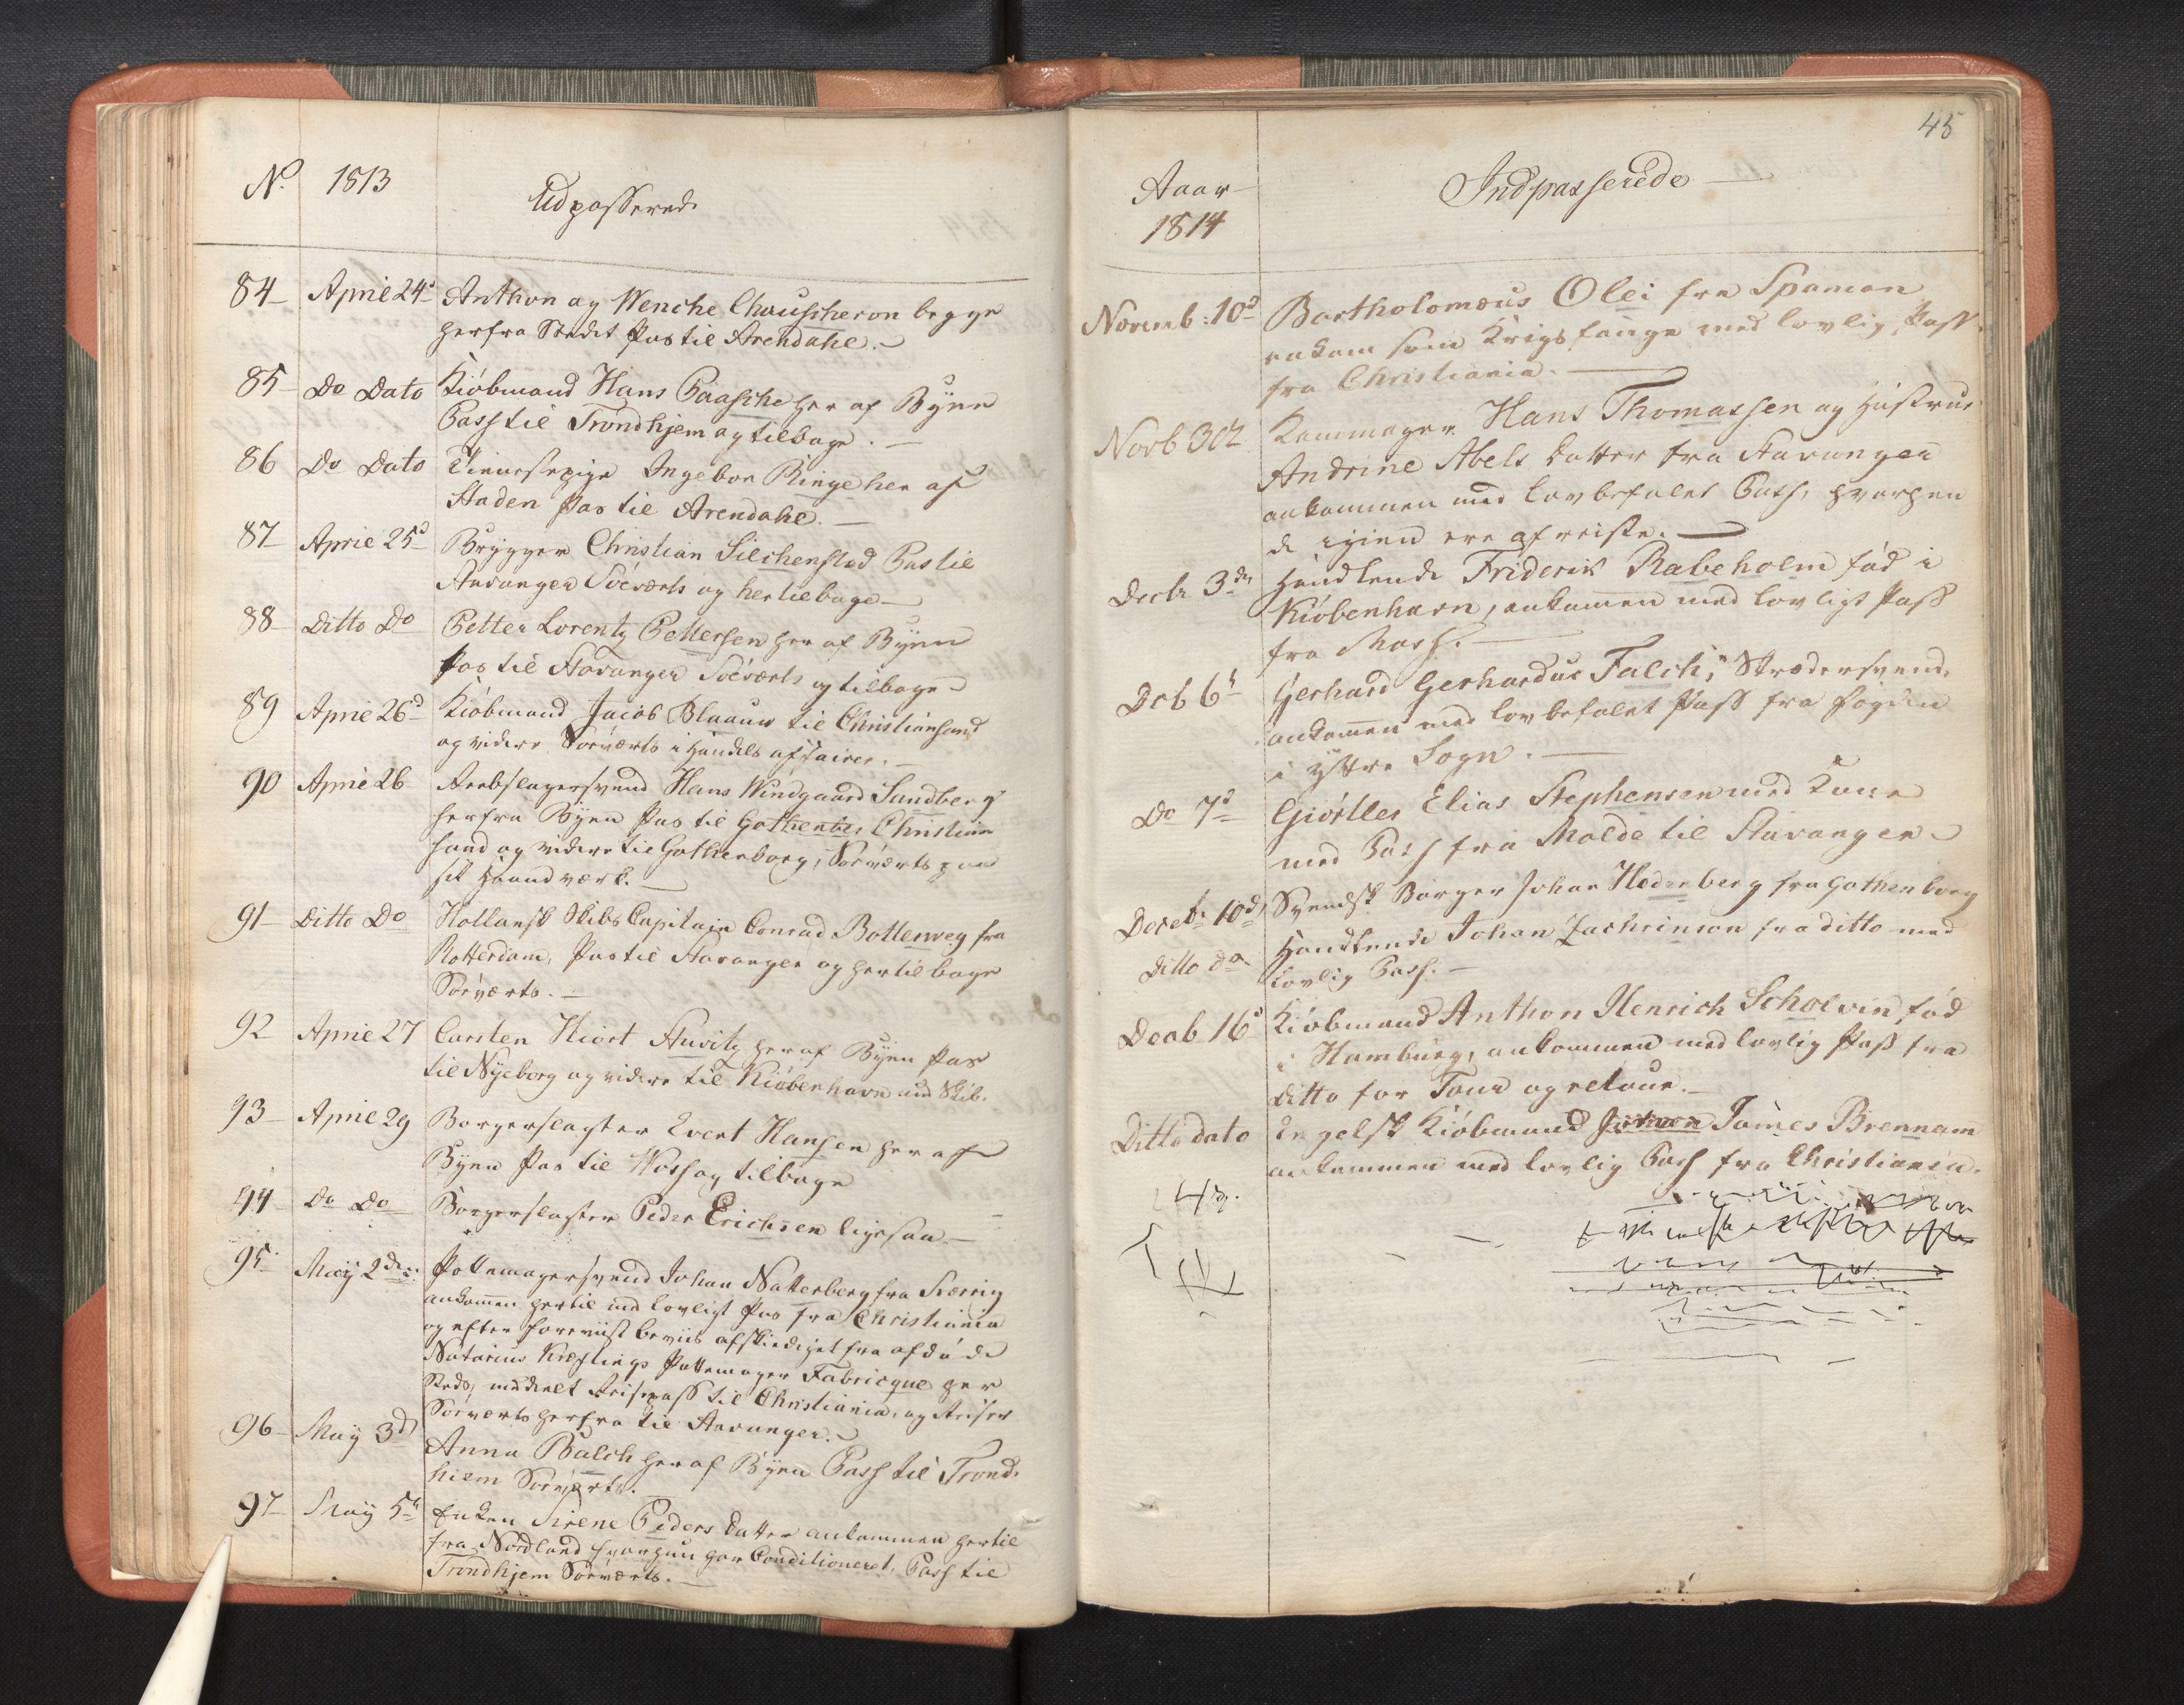 N. 1813 Udpasserede
84 April 24d Anthon og Wenche Chauscheron begge
herfra Stedet Pas til Arendahl.
85 Do Dato Kiöbmand Hans Paasche her af Byen
Pass til Trondhjem og tilbage.
86 Do Dato Tienestepige Ingebor Ringe her af
Staden Pas til Arendahl.
87 April 25d Brygger Christian Silchenstad Pas til
Stavanger Söeværts og her tilbage
88 Ditto Do Petter Lorentz Pettersen her af Byen
Pas til Stavanger Söeværts og tilbage
89 April 26d Kiöbmand Jacob Blaauw til Christiansand
og videre Söeværts i Handels affairer.
90 April 26 Reebslagersvend Hans Windgaard Sundberg
herfra Byen Pas til Christian
sand og videre til Gothenborg, Söeværts paa
sit Haandværk.
91 Ditto Do Hollansk Skibs Capitain Conrad Bottenveg fra
Rotterdam, Pas til Stavanger og her tilbage
Söeværts.
92 April 27 Carsten Hiort Stuvitz her af Byen Pas
til Nyeborg og videre til Kiöbenhavn med Skib.
93 April 29 Borgerslagter Evert Hansen her af
Byen Pas til Woss og tilbage
94 Do Do Borgerslagter Peder Erichsen ligesaa
95 May 2den Pottemagersvend Johan Natterberg fra Sverrig
ankommen hertil med lovligt Pas fra Christiania
og efter foreviist beviis afskediget fra afdöde
Notarius Pottemager Fabricque her
Steds, meddeelt Reisepass til Christiania, og Reiser
Söeværts herfra til Stavanger.
96 May 3d Anna Balch her af Byen Pass til Trond-
hiem Söeværts.
97 May 5te Enken Sirene Peders Datter ankommen hertil
fra Nordland hvor hun har Conditioneret, Pass til
Trondhjem Söeværts.
45
Aaar 1814 Indpasserede
Novemb: 10d Bartholomæus Olei fra Spanien
ankom som Krigsfange med lovlig Pass
fra Christiania.
Novb 30t Kammager Hans Thomassen og Hustrue
Andrine Abels Datter fra Stavanger
ankommen med lovbefalet Pass, hvorhen
de igien ere afreiste.
Decbr 3de Handlende Friderik Rabeholm föd i
Kiöbenhavn, ankommen med lovligt Pass
fra Moss.
Dcb 6t Gerhard Gerhardus Falch, Skrædersvend,
ankommen med lovbefalet Pass fra Fogden
i Yttre Sogn.
Do 7d Giörtler Elias Stephensen med Kone
med Pass fra Molde til Stavanger
Decebr 10d Svendsk Borger Johan Hedenberg fra Gothenborg
Ditto do Handlende Johan Zachrinson fra ditto med
lovlig Pass.
Decb 16d Kiöbmand Anthon Henrich Scholvin, föd
i Hamburg, ankommen med lovlig Pass fra
ditto for Tour og retour.
Ditto dato Engelsk Kiöbmand James Brennam
ankommen med lovlig Pass fra Christiania.